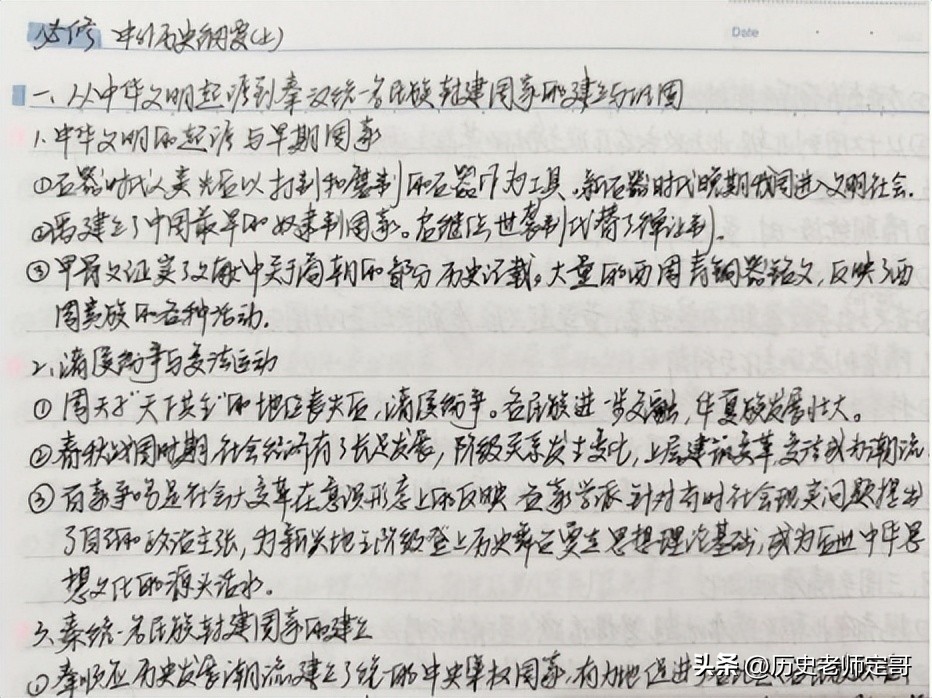 必修 中外历史纲要(上)
Date
一、从中华文明起源到秦汉统一多民族封建国家的建立与巩固
1.中华文明的起源与早期国家
①石器时代人类先后以打制和磨制的石器作为工具。新石器时代晚期我国进入文明社会.
②禹建立了中国最早的奴隶制国家。启继位,世袭制代替了禅让制.
③甲骨文证实了文献中关于商朝的部分历史记载。大量的西周青铜器铭文,反映了西
周贵族的各种活动.
2.诸侯纷争与变法运动
①周天子“天下共主”的地位丧失后,诸侯纷争。各民族进一步交融,华夏族发展壮大。
②春秋战国时期,社会经济有了长足发展,阶级关系发生变化,上层建筑变革,变法成为潮流.
③百家争鸣是社会大变革在意识形态上的反映 各家学派针对当时社会现实问题提出
了自己的政治主张,为新兴地主阶级登上历史舞台奠定思想理论基础,成为后世中华思
想文化的源头活水。
3.秦统一多民族封建国家的建立
①秦顺应历史发展潮流,建立了统一的中央集权国家,有力地促进了
头条 @历史老师定哥